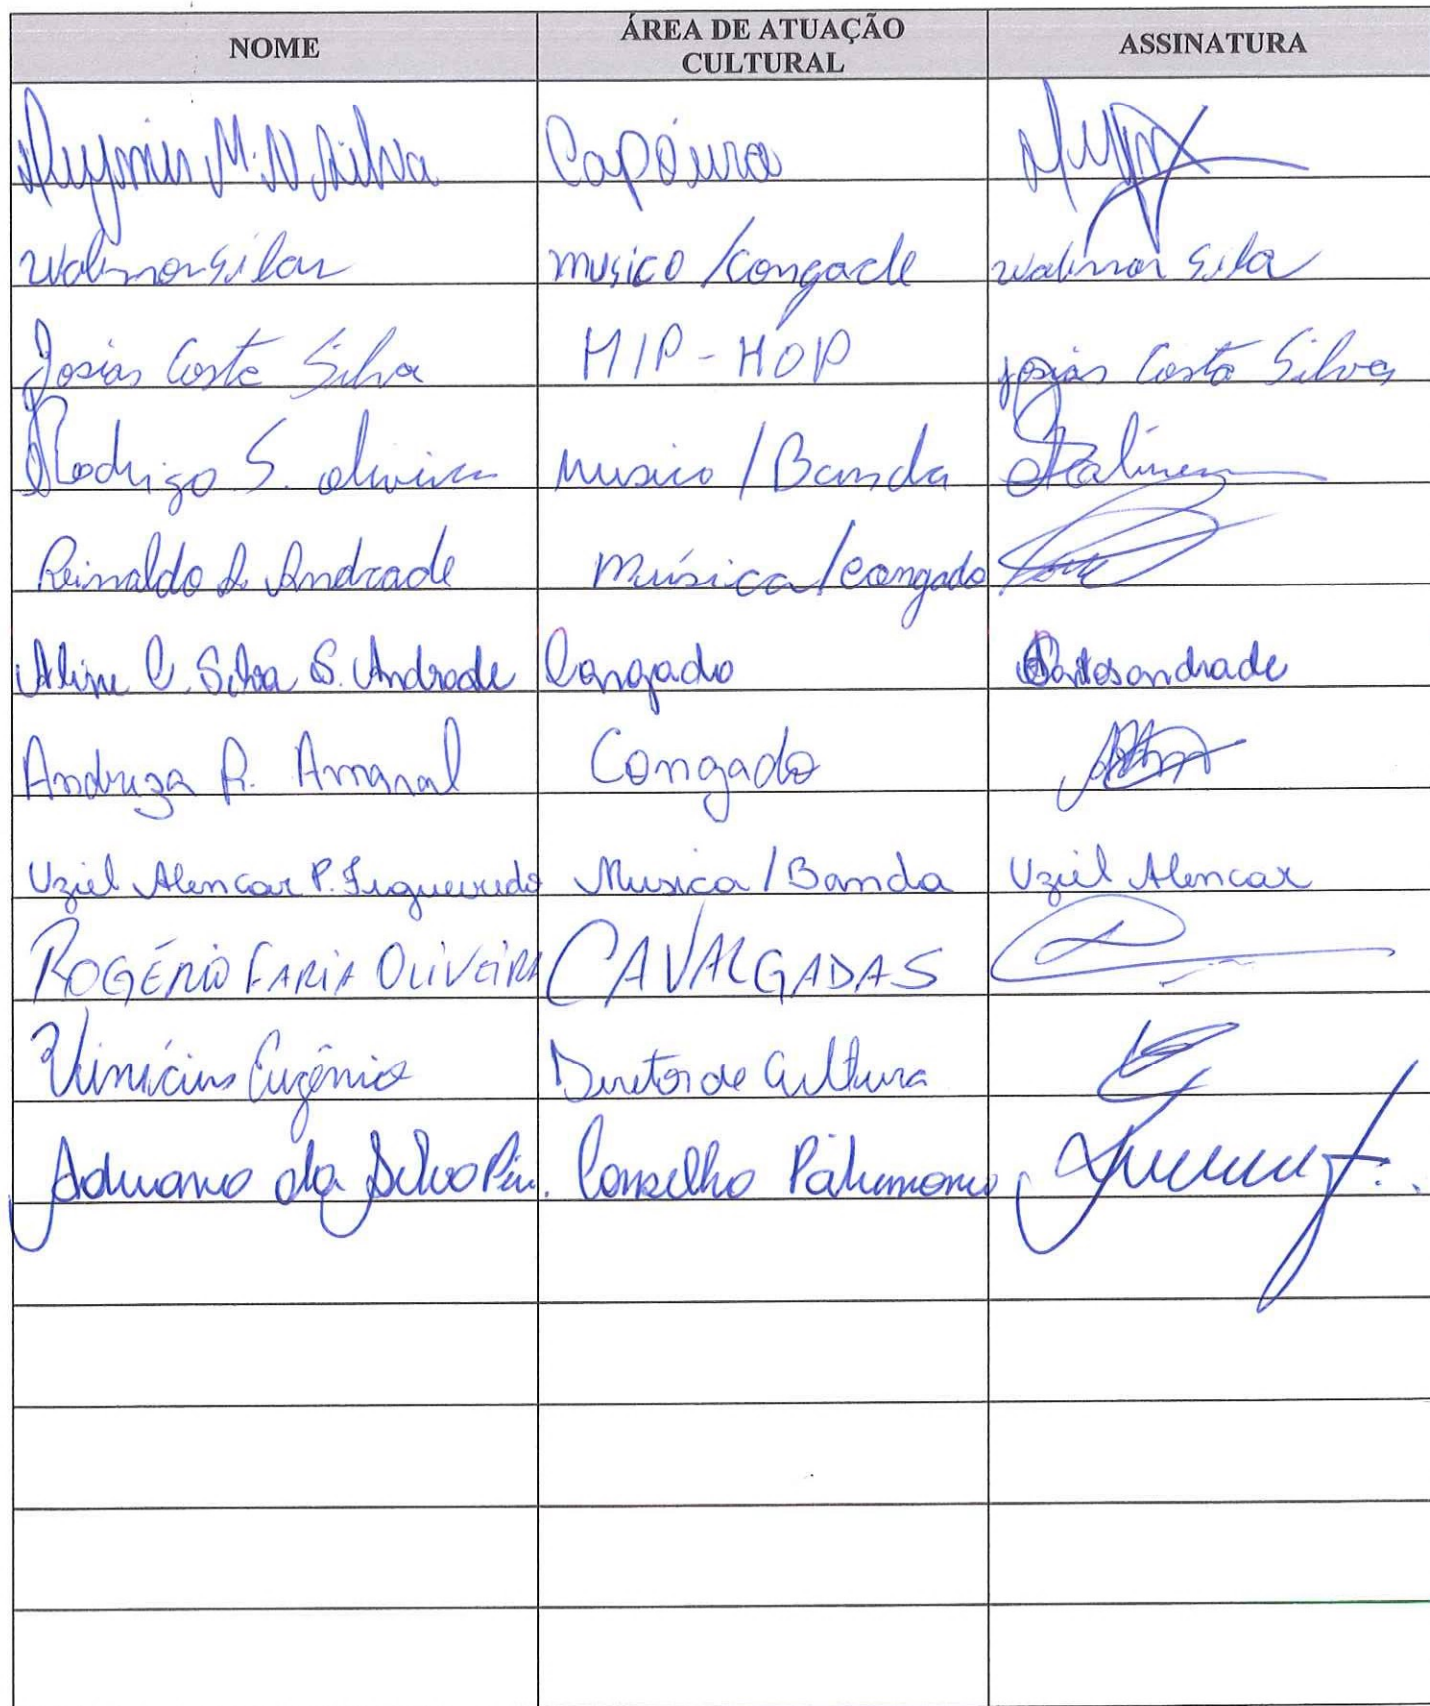 NOME ÁREA DE ATUAÇÃO CULTURAL ASSINATURA
M. N Silva Capoeira
Walmor Silva musico / congade Walmor Silva
Josias Costa Silva HIP-HOP Josias Costa Silva
Rodrigo S. oliveira musico / Banda
Reinaldo A. Andrade Música / congado
Aline C. Silva S. Andrade Congado Santosandrade
Andreza R. Amaral Congado
Uziel Alencar P. Figueiredo Musica / Banda Uziel Alencar
ROGÉRIO FARIA OLIVEIRA CAVALGADAS
Vinícius Eugênio Diretor de Cultura
Adriano da Silva Conselho Patrimonio